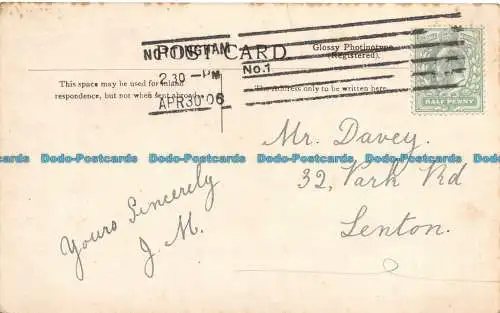 NOTTINGHAM
POST CARD
No.1
Glossy Photinotype
(Registered).
2.30 PM
This space may be used for inland
respondence, but not when sent abroad
The Address only to be written here.
APR 30 06
HALF PENNY
Mr. Davey.
32, Park Rd
Lenton.
Yours Sincerely
J. M.
Dodo-Postcards Dodo-Postcards Dodo-Postcards Dodo-Postcards